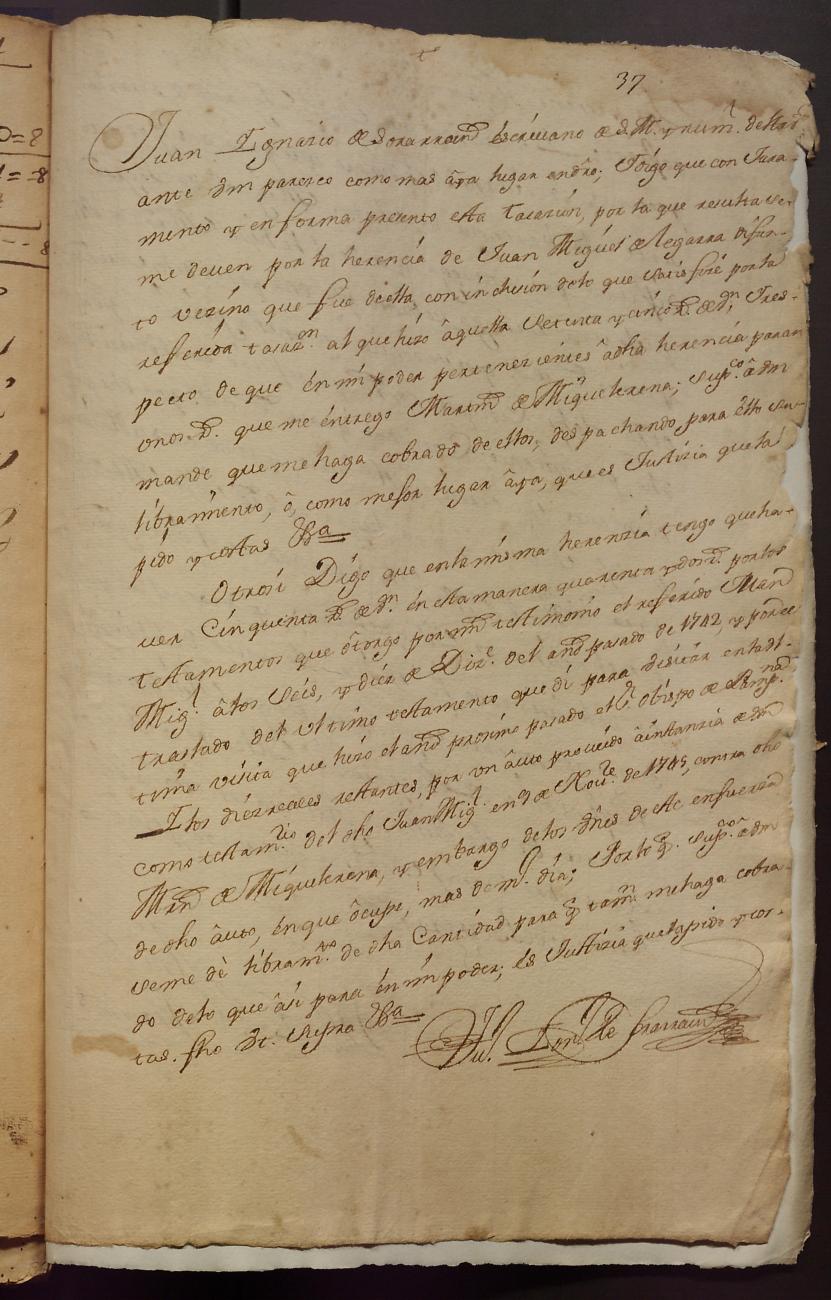 37
Juan Ignacio de Sorarrain escrivano de S. M. y num.l de
ante Vm parezco como mas âya lugar en dro; I digo que con Jura-
mento y en forma presento esta tasazion, por la que resulta se
me deven por la herencia de Juan Miguel de Legarra difun-
to vezino que fue de ella, con inclusion de lo que satisfize por la
referida tasaz.on al que hizo âquella setenta y cinco R.s de v.n, I res-
pecto de que en mi poder pertenezientes âdha herencia paran
unos R.s que me entrego Martin de Miquelerena; Sup.co â Vm
mande que me haga cobrado de ellos, despachando para ello su
libramiento, ô, como mejor lugar âya, que es Justizia que la
pido y costas &a
Otrosi Digo que en la misma herenzia tengo que ha-
ver Cinquenta R.s de v.n en esta manera quarenta y dos R.s por los
testamentos que ôtorgo por mi testimonio el referido Juan
Mig.l â los seis, y diez de Diz.e del año pasado de 1742, y por el
traslado del ultimo testamento que di para visitar en la ul-
tima visita que hizo el año proximo pasado el S.r Obispo de Pamp.na
I los diez reales restantes, por un âuto proveido âinstanzia de Vm
como testam.rio del dho Juan Mig.l en 9 de Nov.e de 1745, contra dho
Mrn de Miquelerena, y embargo de los vienes de &c en fuerza
de dho âuto, en que ôcupe, mas de m.o dia; Por lo q. Sup.co â Vm
se me de libram.to de dha Cantidad para q. tam.n me haga cobra-
do de lo que âsi para en mi poder; es Justizia que la pido y cos-
tas. fho Vt. supra &a
Ju.o Ign.o de Sorarrain